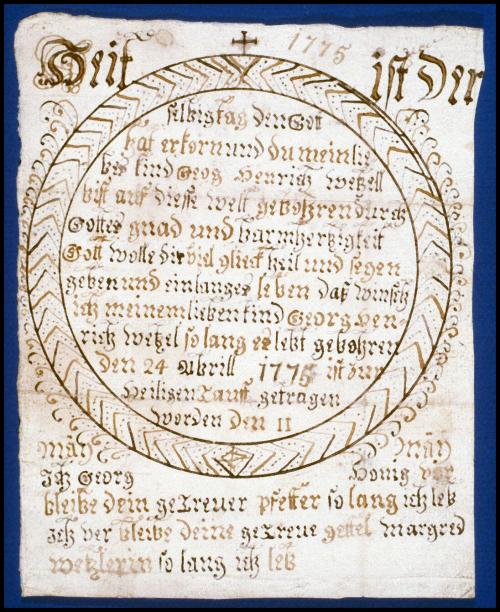 1775
Heit ist Der
selbig tag den Gott
hat erkorn und du mein lie
bes kind Georg Henrich Wetzell
bist auf diesse welt gebohren durch
Gottes gnad und barmhertzigkeit
Gott wolle dir viel glieck heil und segen
geben und ein langes leben daß winsch
ich meinem lieben kind Georg Hen-
rich Wetzel so lang es lebt gebohren
den 24 Abrill 1775 ist zur
Heiligen Tauff getragen
worden den 11
Mäÿ Mäÿ
Ich Georg Honig ver
bleibe dein getreuer pfetter so lang ich leb
ich ver bleibe deine getreue gettel Margred
Wetzlerin so lang ich leb